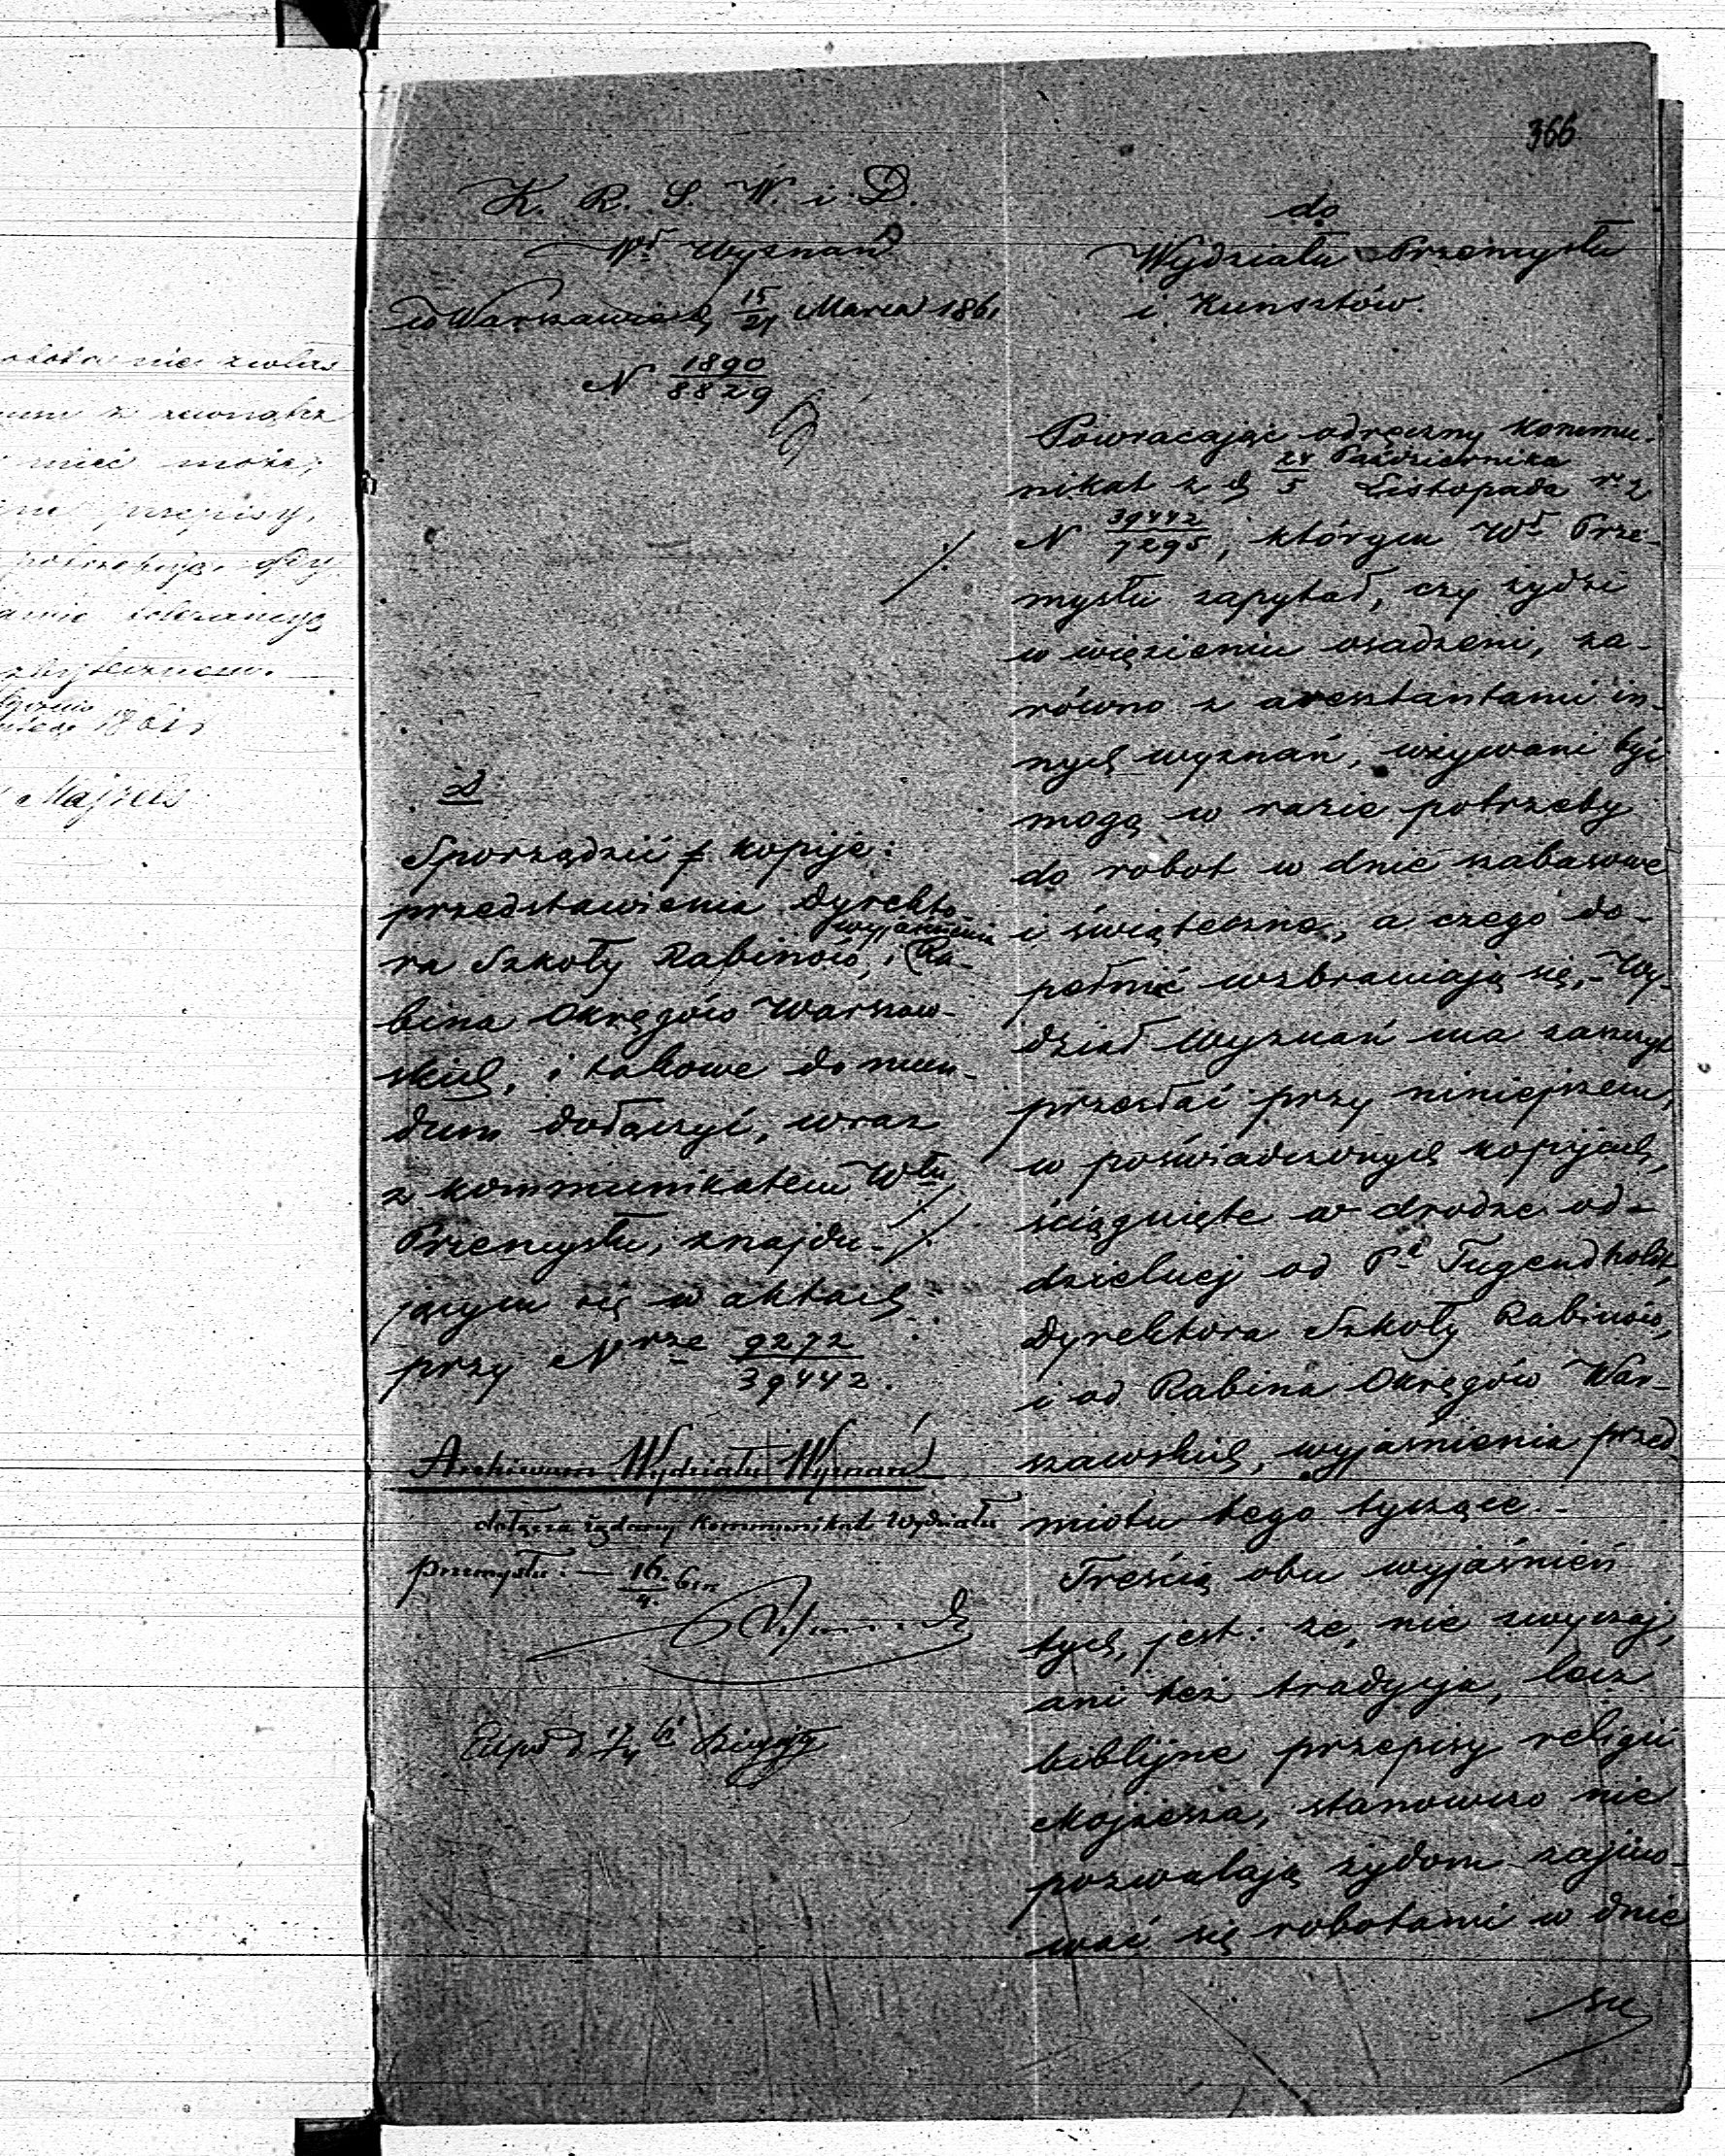 366
K. R. S. W. i D.
Wł Wyznań
w Warszawie d. 15/27 Marca 1861
N 1890/8829
do
Wydziału Przemysłu
i Kunsztów.
Powracając odręczny kommu-
nikat z d. 24 Października
5 Listopada r. z.
N 39442/7295, którym Wł Prze-
mysłu zapytał, czy żydzi
w więzieniu osadzeni, za-
równo z aresztantami in-
nych wyznań, używani być
mogą w razie potrzeby
do robot w dnie szabasowe
i świąteczne, a czego do-
pełnić wzbraniają się, Wy-
dział Wyznań ma zaszczyt
przesłać przy niniejszem,
w poświadczonych kopijach,
ściągnięte w drodze od-
dzielnej od Pa Tugendhold,
Dyrektora Szkoły Rabinów,
i od Rabina Okręgów War-
szawskich, wyjaśnienia przed
miotu tego tyczące.
Treścią obu wyjaśnień
tych, jest: że, nie zwyczaj,
ani też tradycja, lecz
biblijne przepisy religii
Mojżesza, stanowczo nie
pozwalają żydom zajmo-
wać się robotami w dnie
Sporządzić kopije:
przedstawienia Dyrekto-
wyjaśnienia
ra Szkoły Rabinów, i Ra-
bina Okręgów Warszaw-
skich, i takowe do mun-
dum dołączyć, wraz
z kommunikatem Włu
Przemysłu, znajdu-
jącym się w aktach
przy Nrze 9272/39442.
Archiwum Wydziału Wyznań
dołącza żądany Kommunikat Wydziału
przemysłu. — 16/4 61r
ototo nie
z zewnątrz
mieć może;
przepisy,
potrzebują. Gdy
tolerancyą
zbytecznem.
1861 r
Majzels